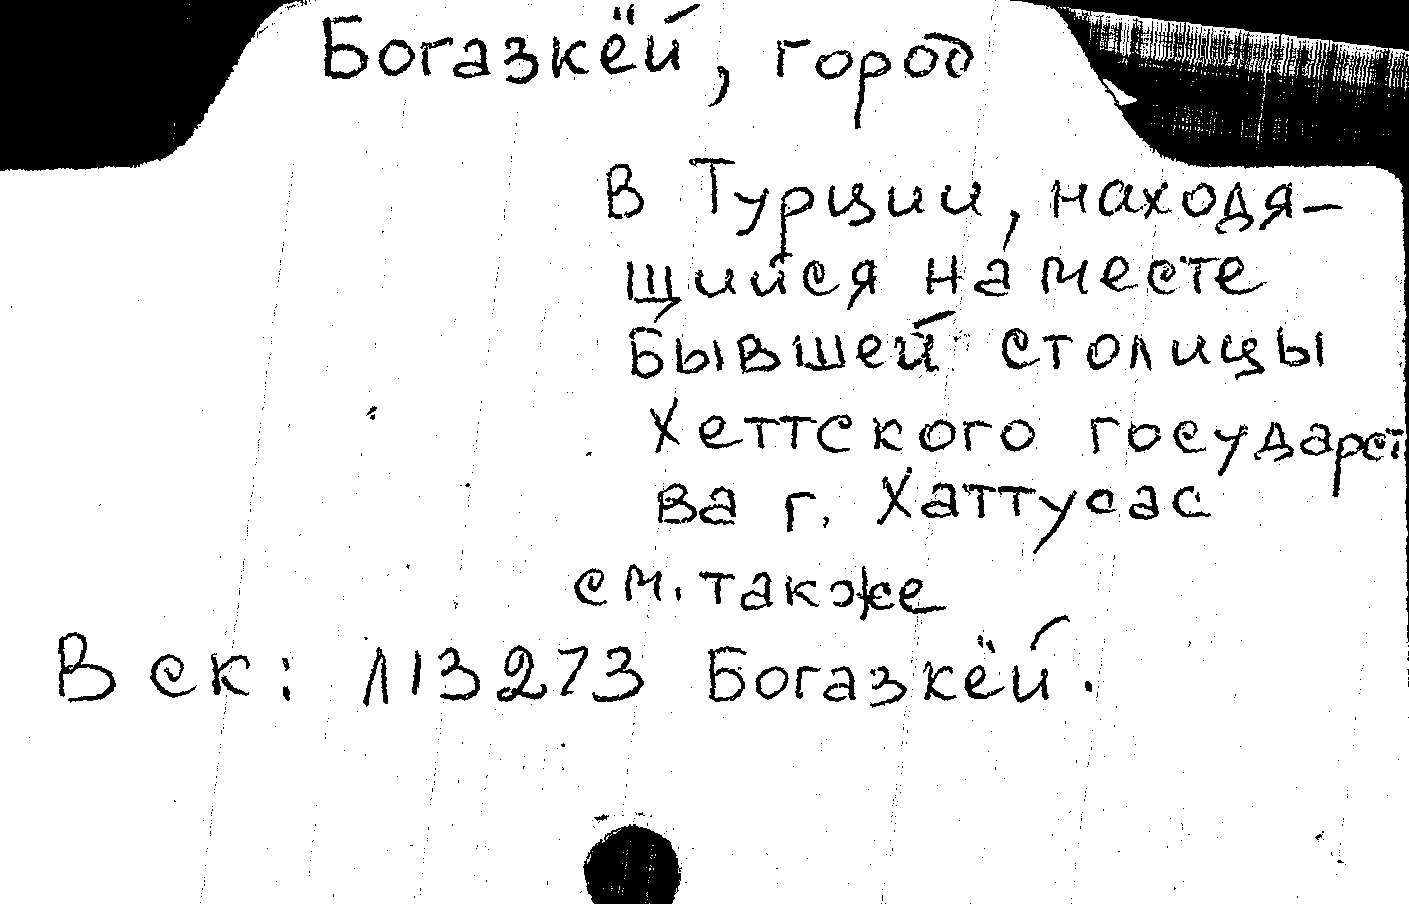 Богазкёй, город
в Турции, находя-
щийся на месте
бывшей столицы
Хеттского государст
ва г. Хаттусас
см. также
В ск: Л13273 Богазкёй.